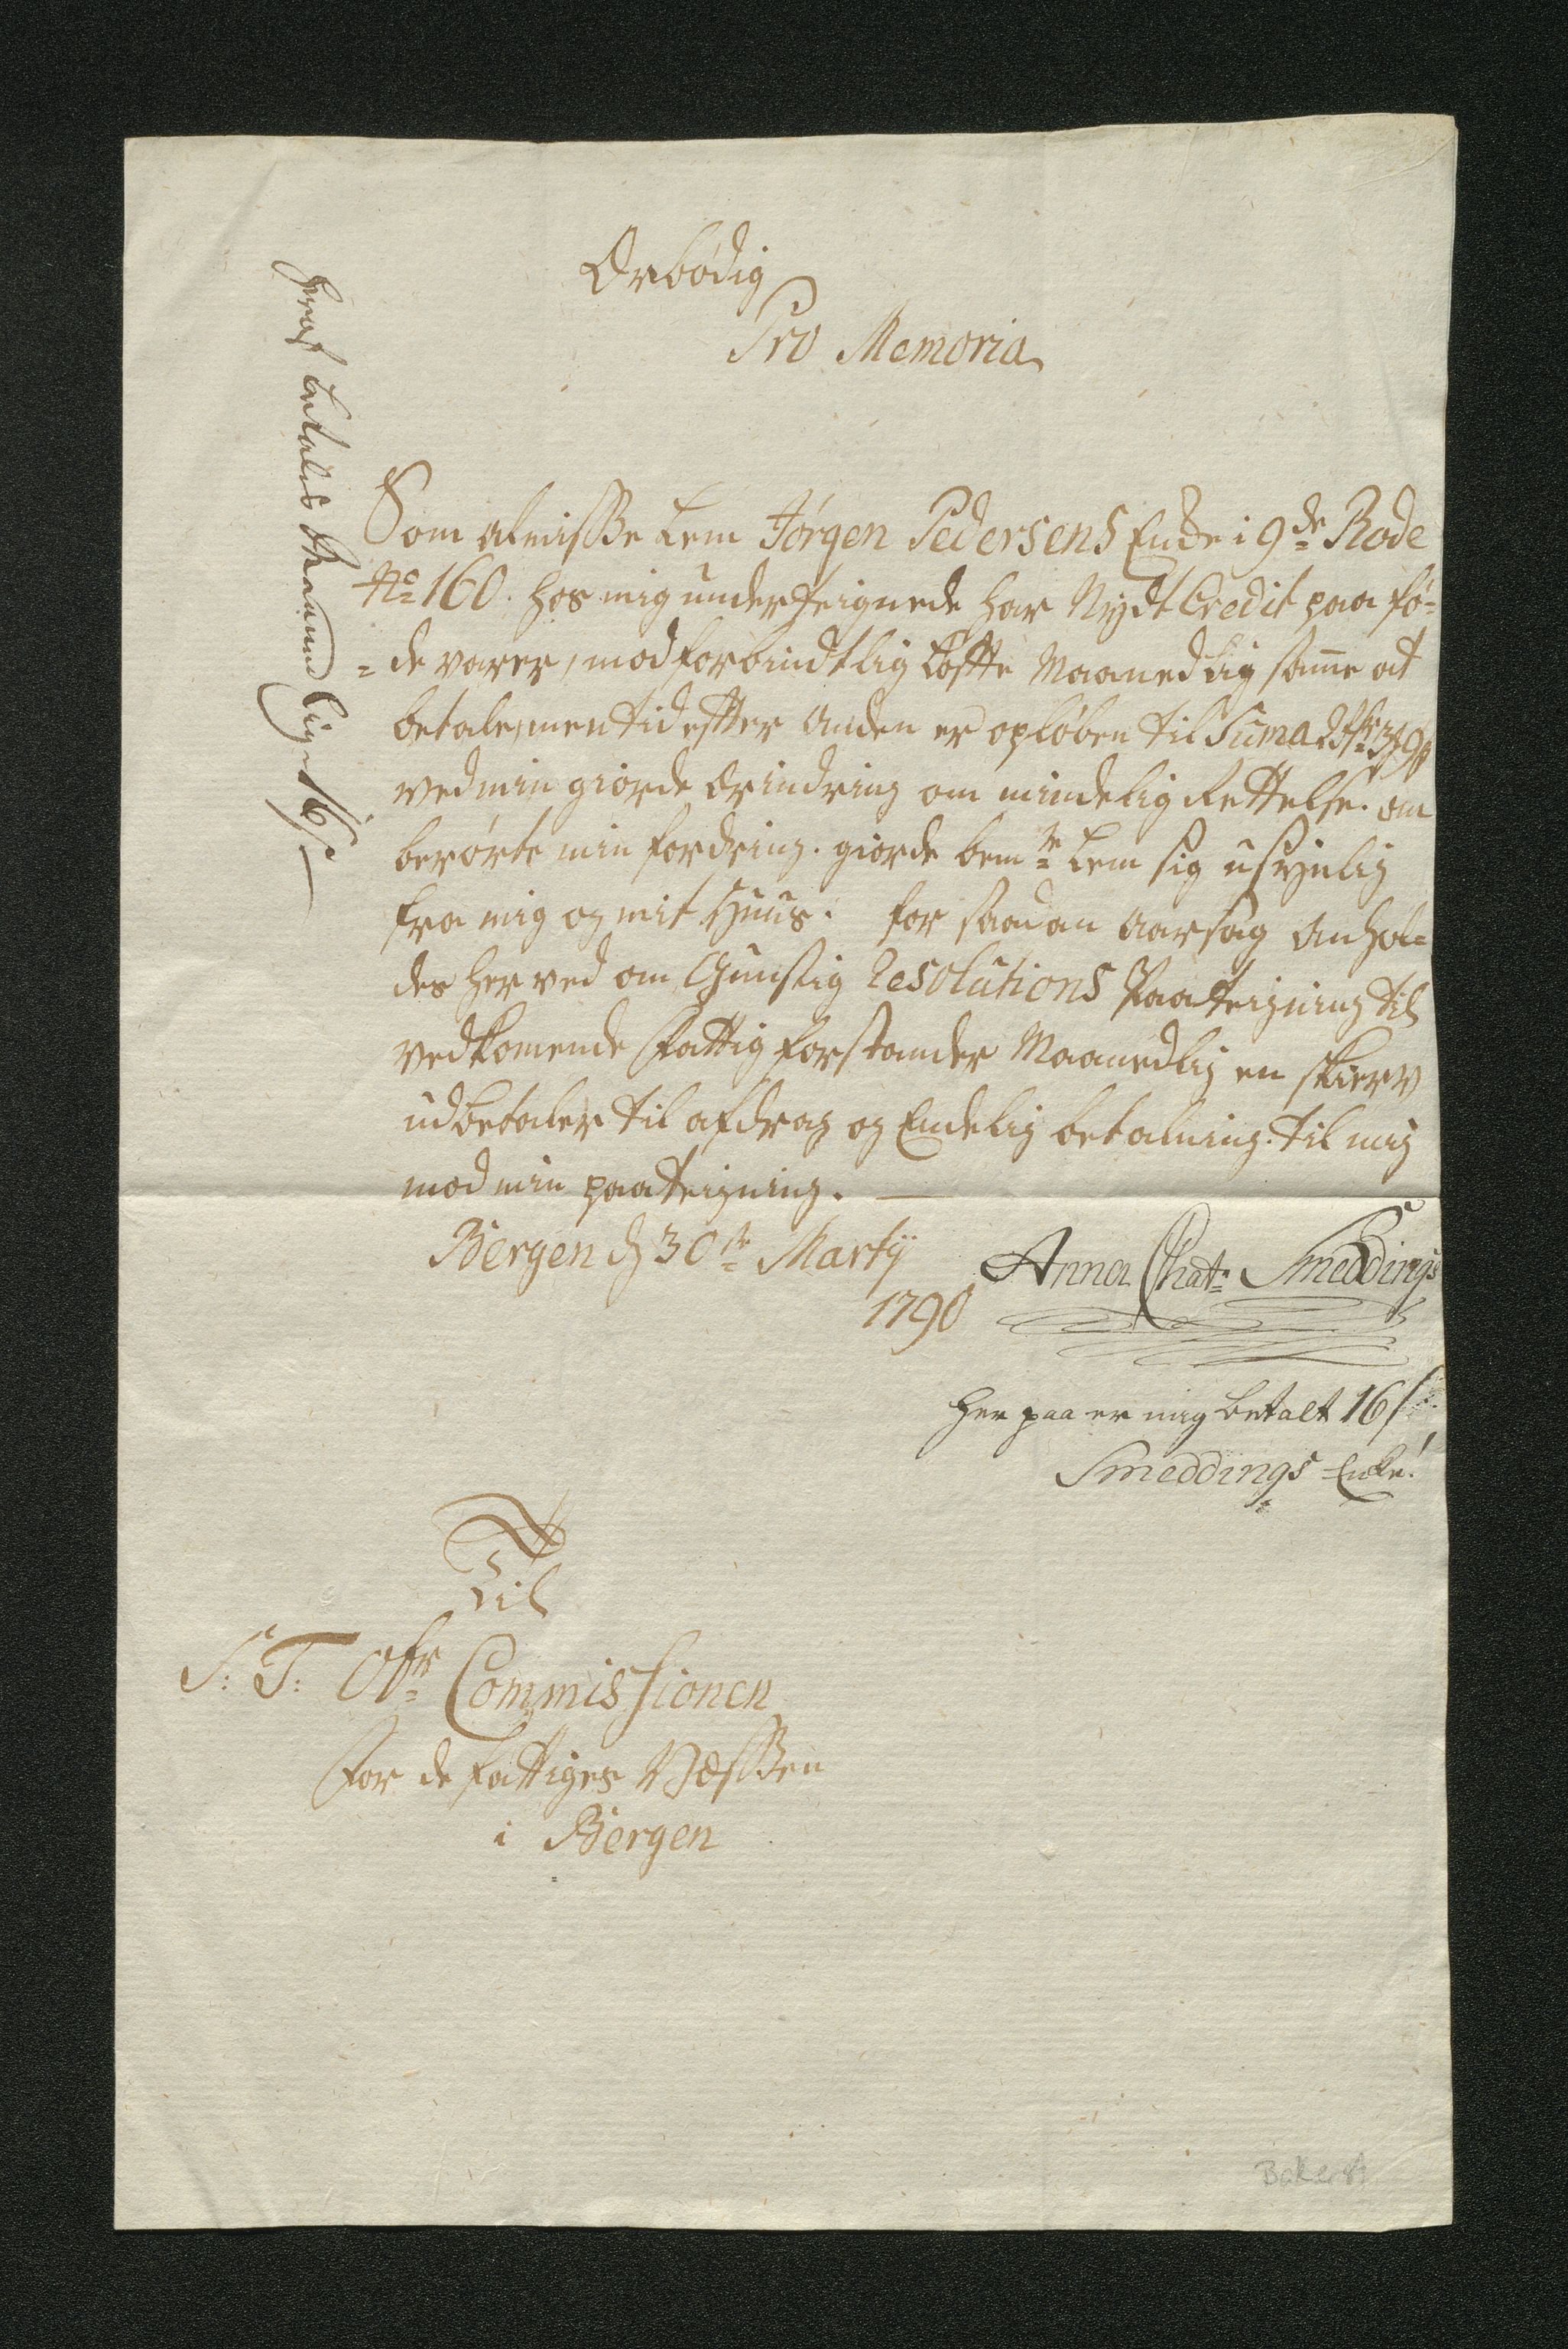 Ærbødig
Pro Memoria
Som almisse Lem Jørgen Pedersens Enke i 9de Rode
No 160. hos mig underteignede har Nydt Credit paa fø-
-de varer, mod forbindtlig Løffte Maanedlig same at
betale, men tid effter anden er opløben til Suma
ved min giorde Erindring om mindelig Rettelse. om
berørte min fordring. giorde bemte Lem sig usynlig
fra mig og mit Huus. for saadan aarsag anhol-
des herved om Gunstig Resolutions Paateigning til
vedkomende Fattig forstander Maanedlig en skierv
udbetaler til afdrag og Endelig betalning. til mig
mod min paateigning.
Bergen d 30te Martij
1790
Anna Chat: Smeddings
Her paa er mig betalt 16 s
Smeddings Enke
Til
S: T: Obr Commissionen
For de fattiges Vessen
i Bergen
heraf betales Maanedlig 16 s
Bakerst